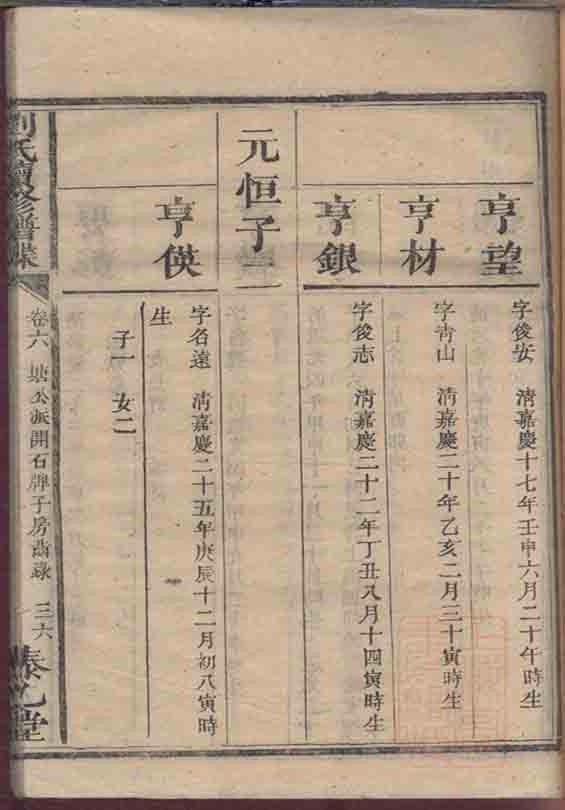 亨望
字俊安　清嘉慶十七年壬申六月二十午時生
亨材
字靑山　清嘉慶二十年乙亥二月三十寅時生
亨銀
字俊志　清嘉慶二十二年丁丑八月十四寅時生
元恒子二
亨偀
字名遠　清嘉慶二十五年庚辰十二月初八寅時
生
子一　女二
氏續修譜牒
卷六　塘公派開石牌子房齒錄　三六
堂